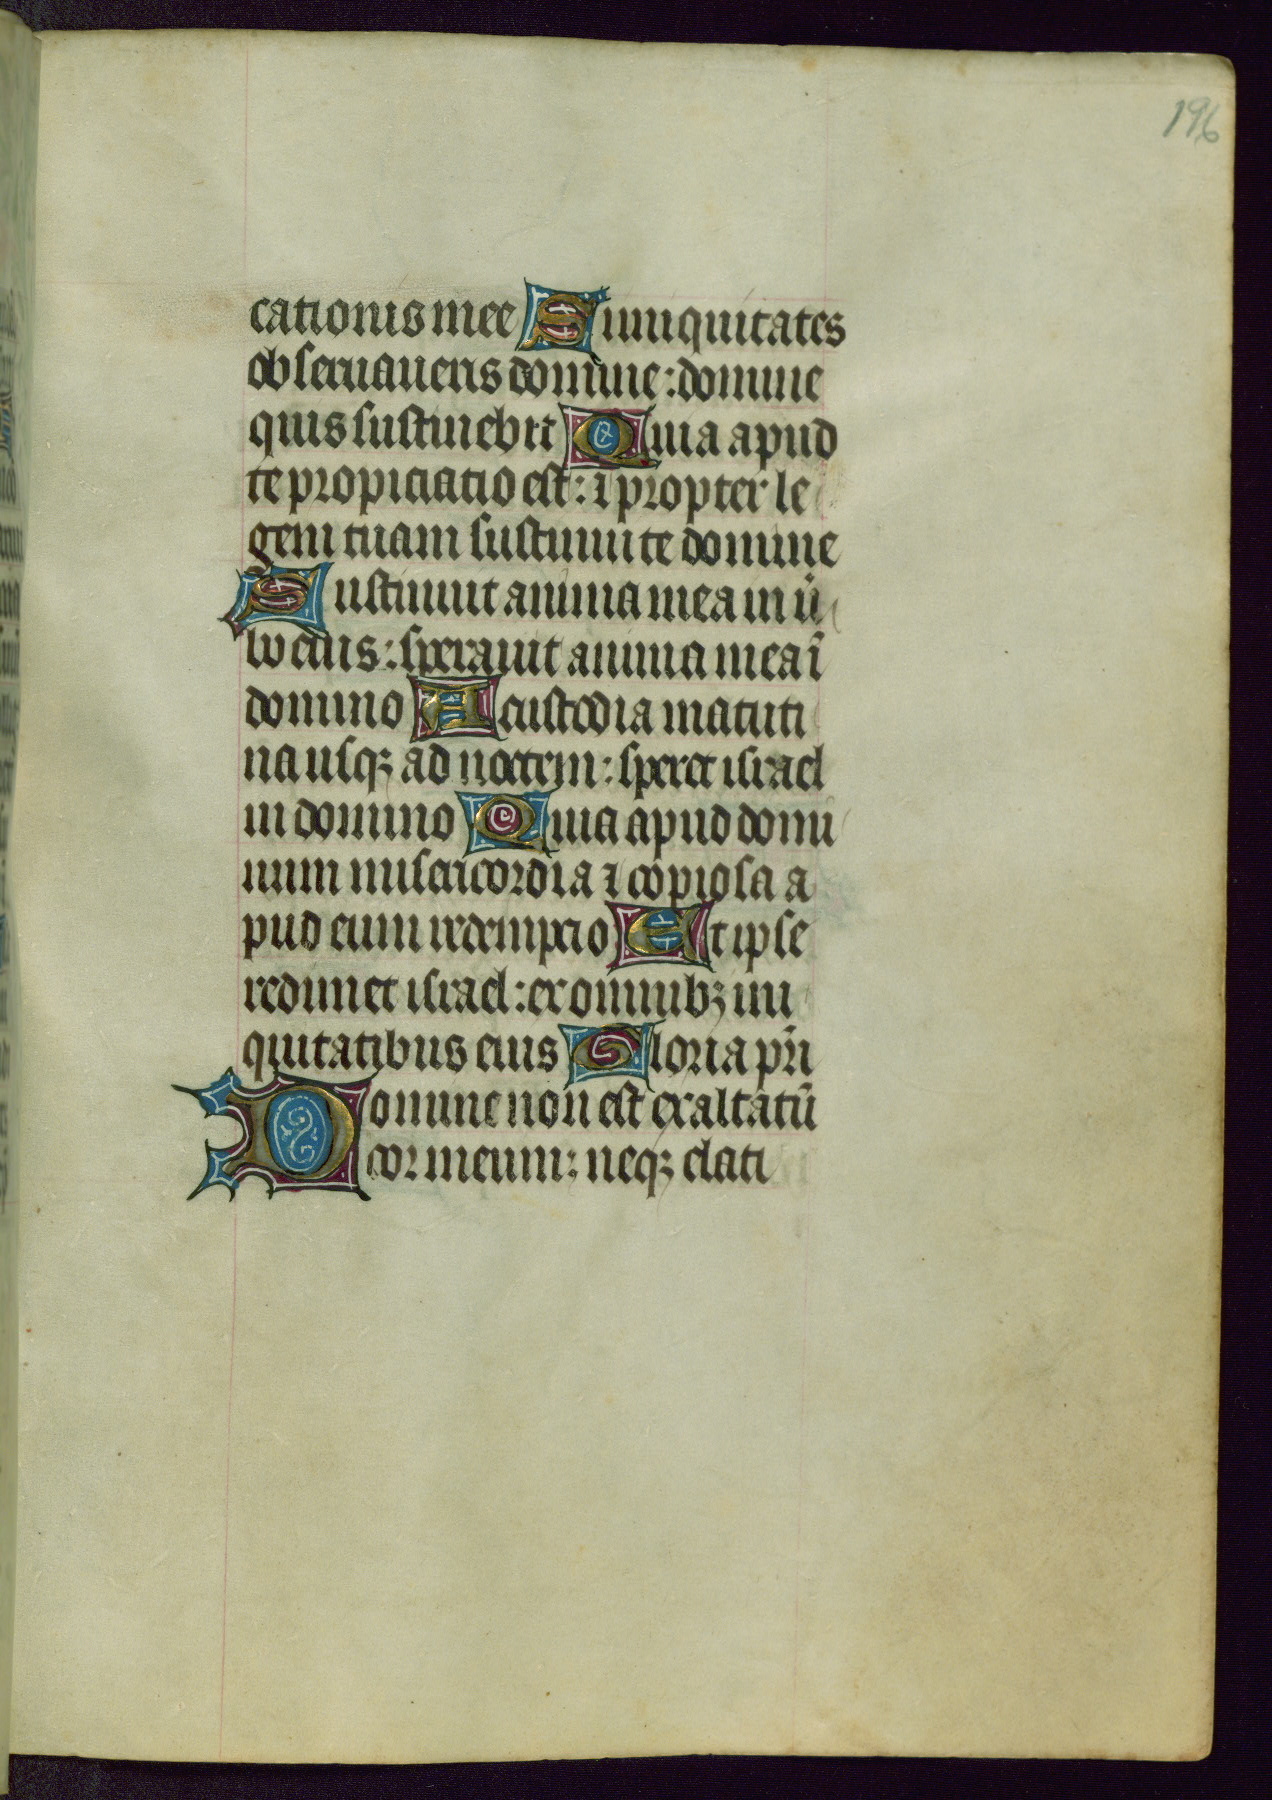 196
cationis mee Si iniquitates
observaueris domine : domine
quis sustinebit Quia apud
te propiciatio est : ⁊ propter le
gem tuam sustinui te domine
Sustinuit anima mea in v̄
bo eius : speravit anima mea ī
domino A custodia matuti
na usqꝫ ad noctem : speret israel
in domino Quia apud domi
num misericordia ⁊ copiosa a
pud eum redempcio Et ipse
redimet israel : ex omnibꝫ ini
quitatibus eius Gloria pr̄i
Domine non est exaltatū
cor meum : neqꝫ elati